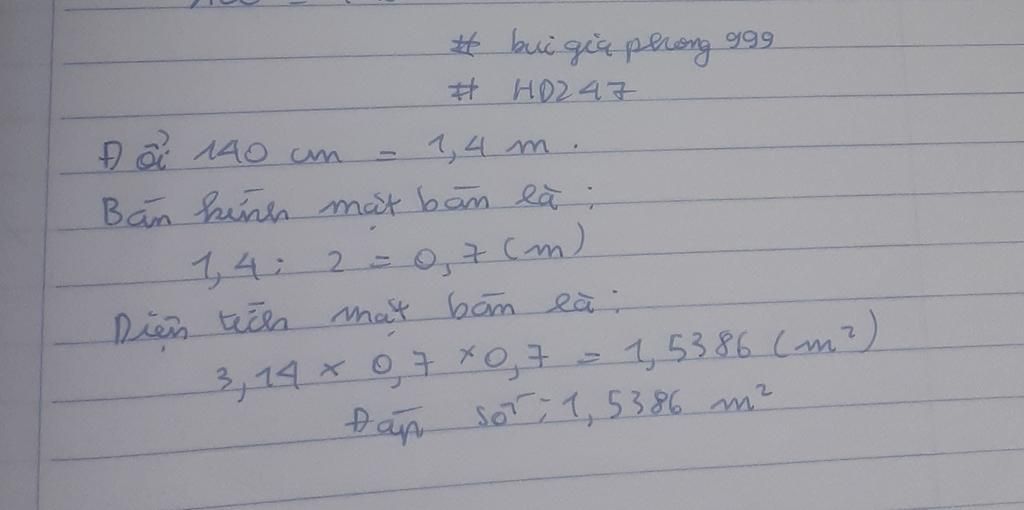 # buigiaphong999
# HD247
Đổi 140 cm = 1,4 m.
Bán kính mặt bàn là:
1,4 : 2 = 0,7 (m)
Diện tích mặt bàn là:
3,14 × 0,7 × 0,7 = 1,5386 (m²)
Đáp số: 1,5386 m²